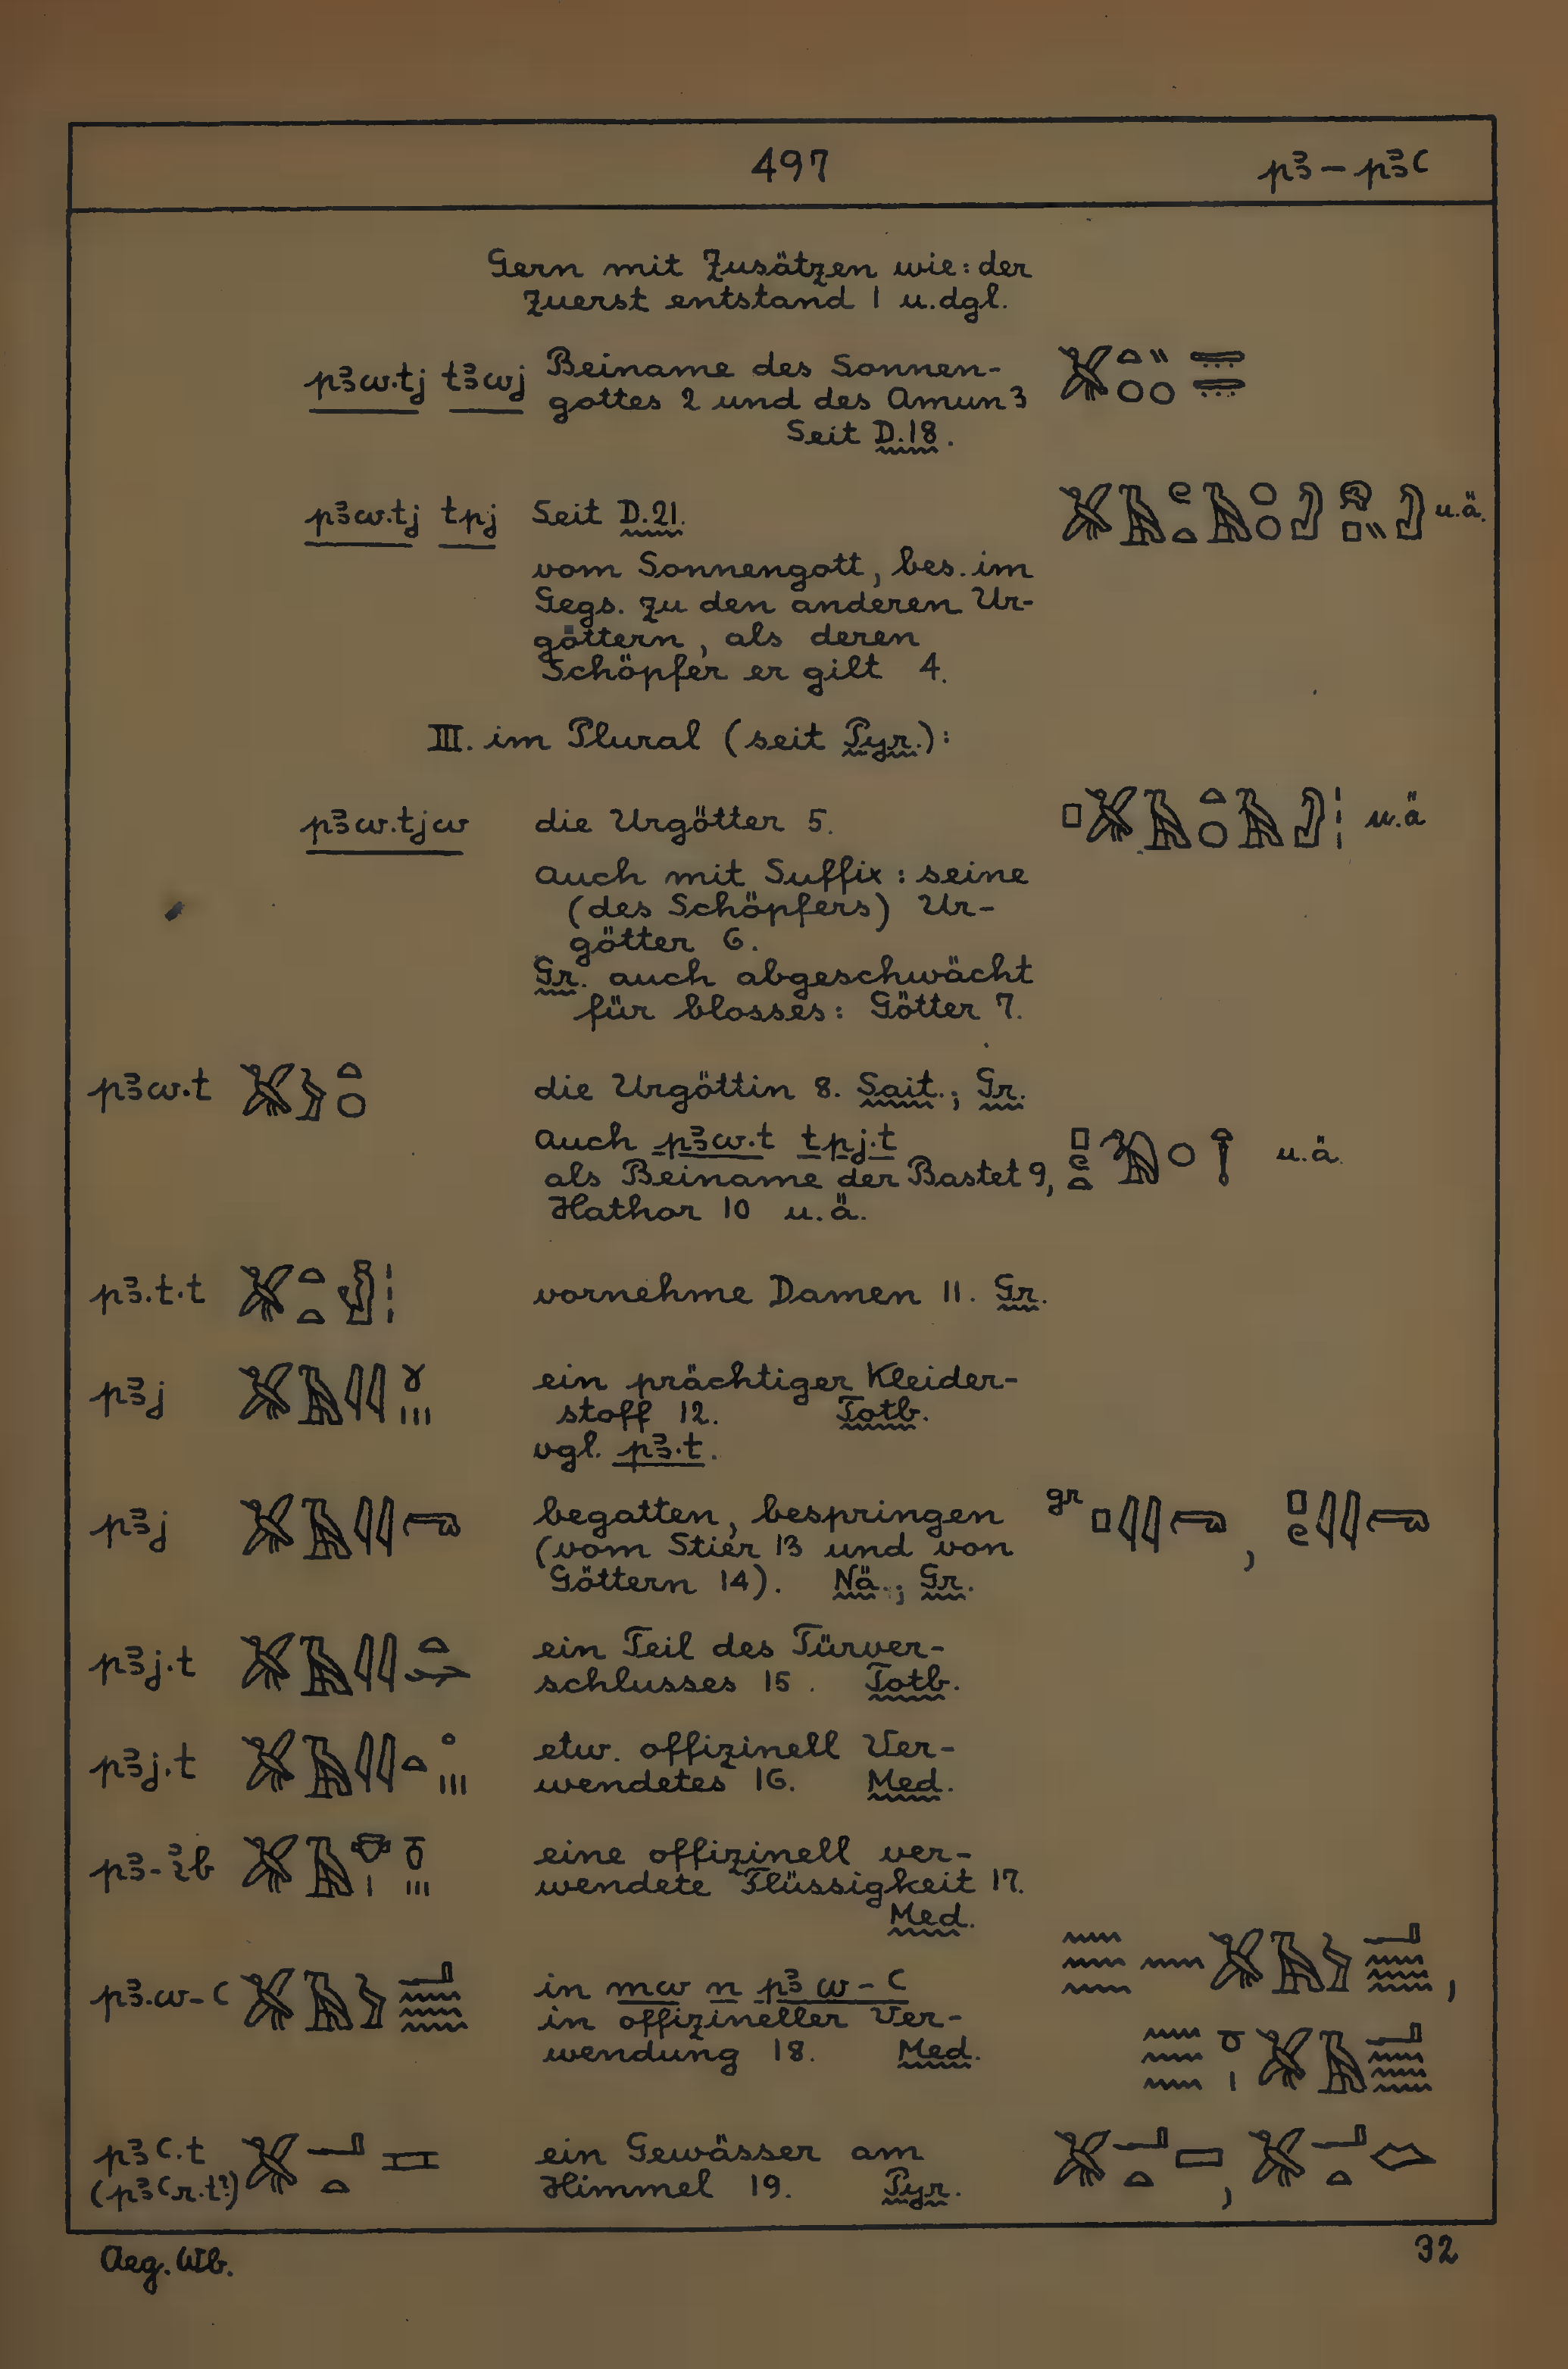 497 pꜣ – pꜣꜥ
Gern mit Zusätzen wie: der
zuerst entstand 1 u.dgl.
pꜣw.tj tꜣwj Beiname des Sonnen-
gottes 2 und des Amun 3
Seit D.18.
pꜣw.tj tpj Seit D.21. u.ä.
vom Sonnengott, bes. im
Gegs. zu den anderen Ur-
göttern, als deren
Schöpfer er gilt 4.
III. im Plural (seit Pyr.):
pꜣw.tjw die Urgötter 5. u.ä
auch mit Suffix: seine
(des Schöpfers) Ur-
götter 6.
Gr. auch abgeschwächt
für blosses: Götter 7.
pꜣw.t die Urgöttin 8. Sait.; Gr.
auch pꜣw.t tpj.t
als Beiname der Bastet 9, u.ä.
Hathor 10 u.ä.
pꜣ.t.t vornehme Damen 11. Gr.
pꜣj ein prächtiger Kleider-
stoff 12. Totb.
vgl. pꜣ.t.
pꜣj begatten, bespringen gr ,
(vom Stier 13 und von
Göttern 14). Nä.; Gr.
pꜣj.t ein Teil des Türver-
schlusses 15. Totb.
pꜣj.t etw. offizinell Ver-
wendetes 16. Med.
pꜣ-ꞽb eine offizinell ver-
wendete Flüssigkeit 17.
Med.
pꜣ.w-ꜥ in mw n pꜣ w-ꜥ ,
in offizineller Ver-
wendung 18. Med.
pꜣꜥ.t ein Gewässer am ,
(pꜣꜥr.t?) Himmel 19. Pyr.
Aeg. Wb. 32